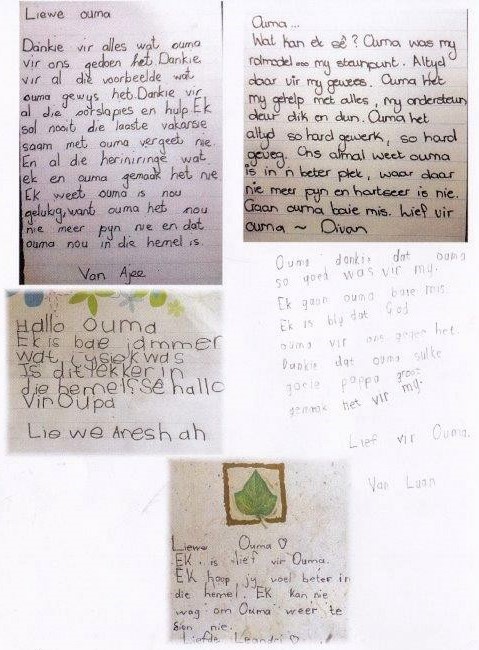 Liewe ouma
Dankie vir alles wat ouma
vir ons gedoen het. Dankie
vir al die voorbeelde wat
ouma gewys het. Dankie vir
al die oorslapies en hulp. Ek
sal nooit die laaste vakansie
saam met ouma vergeet nie.
En al die heriniringe wat
ek en ouma gemaak het nie
Ek weet ouma is nou
gelukig, want ouma het nou
nie meer pyn nie en dat
ouma nou in die hemel is.
Van Ajee
Ouma...
Wat kan ek sê? Ouma was my
rolmodel... my steunpunt. Altyd
daar vir my gewees. Ouma Het
my gehelp met alles, my ondersteun
deur dik en dun. Ouma het
altyd so hard gewerk, so hard
geveg. Ons almal weet ouma
is in 'n beter plek, waar daar
nie meer pyn en hartseer is nie.
Gaan ouma baie mis. Lief vir
ouma ~ Divan
Hallo Ouma
Ek is bae jammer
wat jy siek was
Is dit lekker in
die hemel? Sê hallo
vir Oupa
Liewe Areshah
Ouma dankie dat ouma
so goed was vir my.
Ek gaan ouma baie mis
Ek is bly dat God
ouma vir ons gegee het.
Dankie dat ouma sulke
goeie pappa groot
gemaak het vir my.
Lief vir Ouma.
Van Luan
Liewe Ouma ♡
EK is lief vir Ouma.
EK hoop jy voel beter in
die hemel. EK kan nie
wag om Ouma weer te
sien nie.
Liefde Leandri ♡